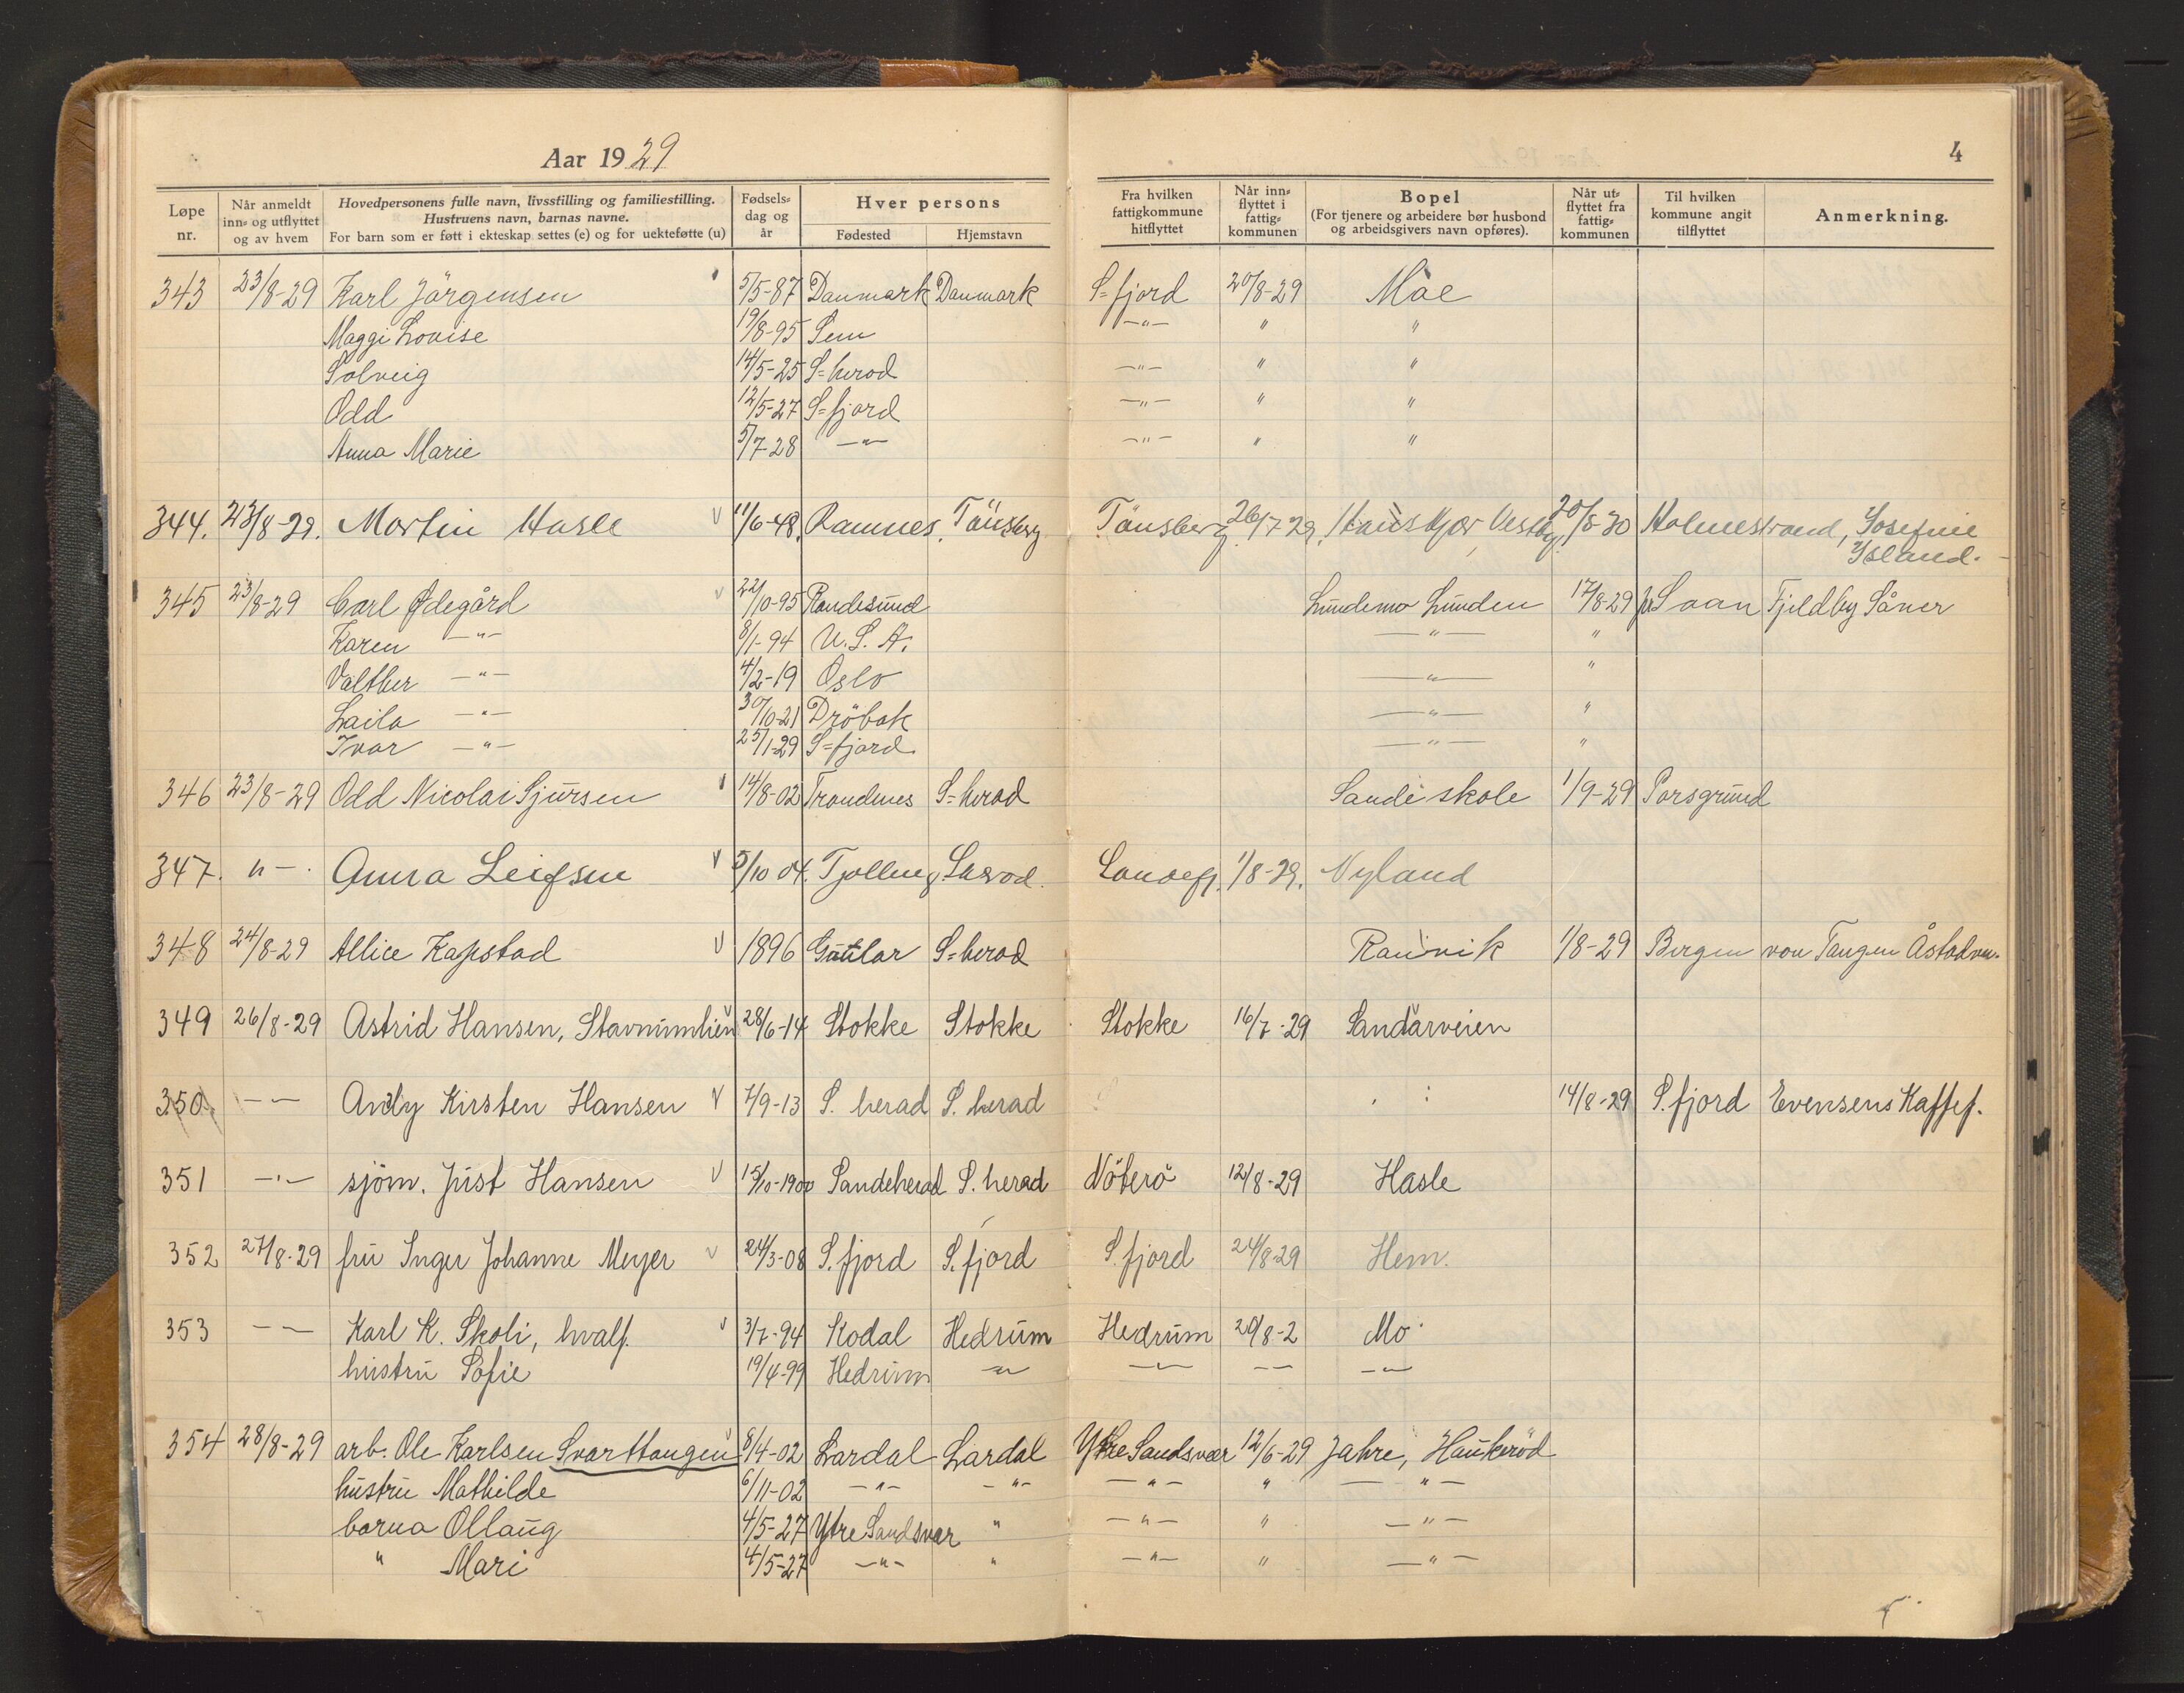 Aar 1929
4
Løpe nr. | Når anmeldt inn- og utflyttet og av hvem | Hovedpersonens fulle navn, livsstilling og familiestilling. Hustruens navn, barnas navne. For barn som er føtt i ekteskap settes (e) og for uekteføtte (u) | Fødselsdag og år | Hver persons Fødested | Hjemstavn | Fra hvilken fattigkommune hitflyttet | Når innflyttet i fattigkommunen | Bopel (For tjenere og arbeidere bør husbond og arbeidsgivers navn opføres). | Når utflyttet fra fattigkommunen | Til hvilken kommune angit tilflyttet | Anmerkning.
343 23/8-29 Karl Jörgensen 5/5-87 Danmark Danmark S=fjord 20/8-29 Moe
Maggi Lovise 19/8-95 Sem -"- " "
Solveig 14/5-25 S=herod -"- " "
Odd 12/5-27 S=fjord -"- " "
Anna Marie 5/7-28 -"- -"- " "
344. 23/8-29. Martin Hasle V 11/6-48. Ramnes. Tönsberg Tönsberg 26/7 29. Vestby 20/8-30 Holmestrand, Josefine
Ysland.
345 23/8-29 Carl Ødegård V 22/10-95 Randesund Lundemo Lunden 17/8-29 Saan Fjeldby Såner
Karen -"- 8/1-94 U.S.A. -"- "
Valther -"- 4/2-19 Oslo -"- "
Laila -"- 30/10-21 Dröbak -"- "
Ivar -"- 25/1-29 S=fjord. -"- "
346 23/8-29 Odd Nicolai Sjursen 14/8-02 Trondenes S=herod Sande skole 1/9-29 Porsgrund
347. "-. Anna Leifsen V 5/10 04. Tjølling Sandefj. 1/8-29. Nyland
348 24/8-29 Allice Kapstad V 1896 S=herod Ranvik 1/8-29 Bergen von Tangen
349 26/8-29 Astrid Hansen, Stavnumlien V 28/6-14 Stokke Stokke Stokke 16/7-29 Sandarveien
350. -- Andy Kirsten Hansen V 7/9-13 S. herad S. herad 14/8-29 S. fjord Evensens Kaffef.
351 -"- sjöm. Just Hansen V 15/10-1900 Sandeherad S. herad Nöterö 12/8-29 Hasle
352 27/8-29 fru Inger Johanne Meyer V 24/3-08 S. fjord S. fjord S. fjord 24/8-29 Hem.
353 -- Karl K. Skoli, hvalf. V 3/7-94 Kodal Hedrum Hedrum 20/8-2 Mo
hustru Sofie 19/4-99 Hedrum -"- -"- -- -"-
354 28/8-29 arb. Ole Karlsen Svarttangen 8/4-02 Lardal Lardal Ytre Sandsvær 12/6-29 Jahre, Haukeröd
hustru Mathilde 6/11-02 -"- -"- -"- " -"-
barna Ollaug 4/5-27 Ytre Sandsvær " -"- " -"-
" Mari 4/5-27 -"- " -"- " -"-